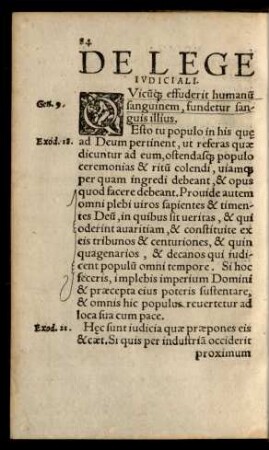 84
DE LEGE
IVDICIALI.
Gen. 9.
QVicũq; effuderit humanũ
sanguinem, fundetur san-
guis illius.
Exod. 18.
Esto tu populo in his quę
ad Deum pertinent, ut referas quæ
dicuntur ad eum, ostendasq; populo
ceremonias & ritũ colendi, uiamq;
per quam ingredi debeant, & opus
quod facere debeant. Prouide autem
omni plebi uiros sapientes & timen-
tes Deũ, in quibus sit ueritas, & qui
oderint auaritiam, & constituite ex
eis tribunos & centuriones, & quin
quagenarios, & decanos qui iudi-
cent populũ omni tempore. Si hoc
feceris, implebis imperium Domini
& præcepta eius poteris sustentare,
& omnis hic populus reuertetur ad
loca sua cum pace.
Exod. 21.
Hęc sunt iudicia quæ præpones eis
& cæt. Si quis per industriã occiderit
proximum